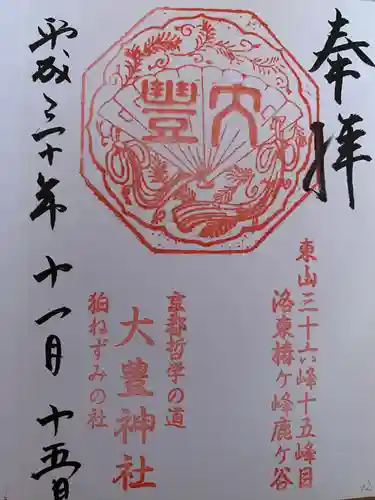 奉拝
大豐
東山三十六峰十五峰目
洛東椿ヶ峰鹿ヶ谷
京都哲学の道
大豊神社
狛ねずみの社
平成三十年十一月十五日